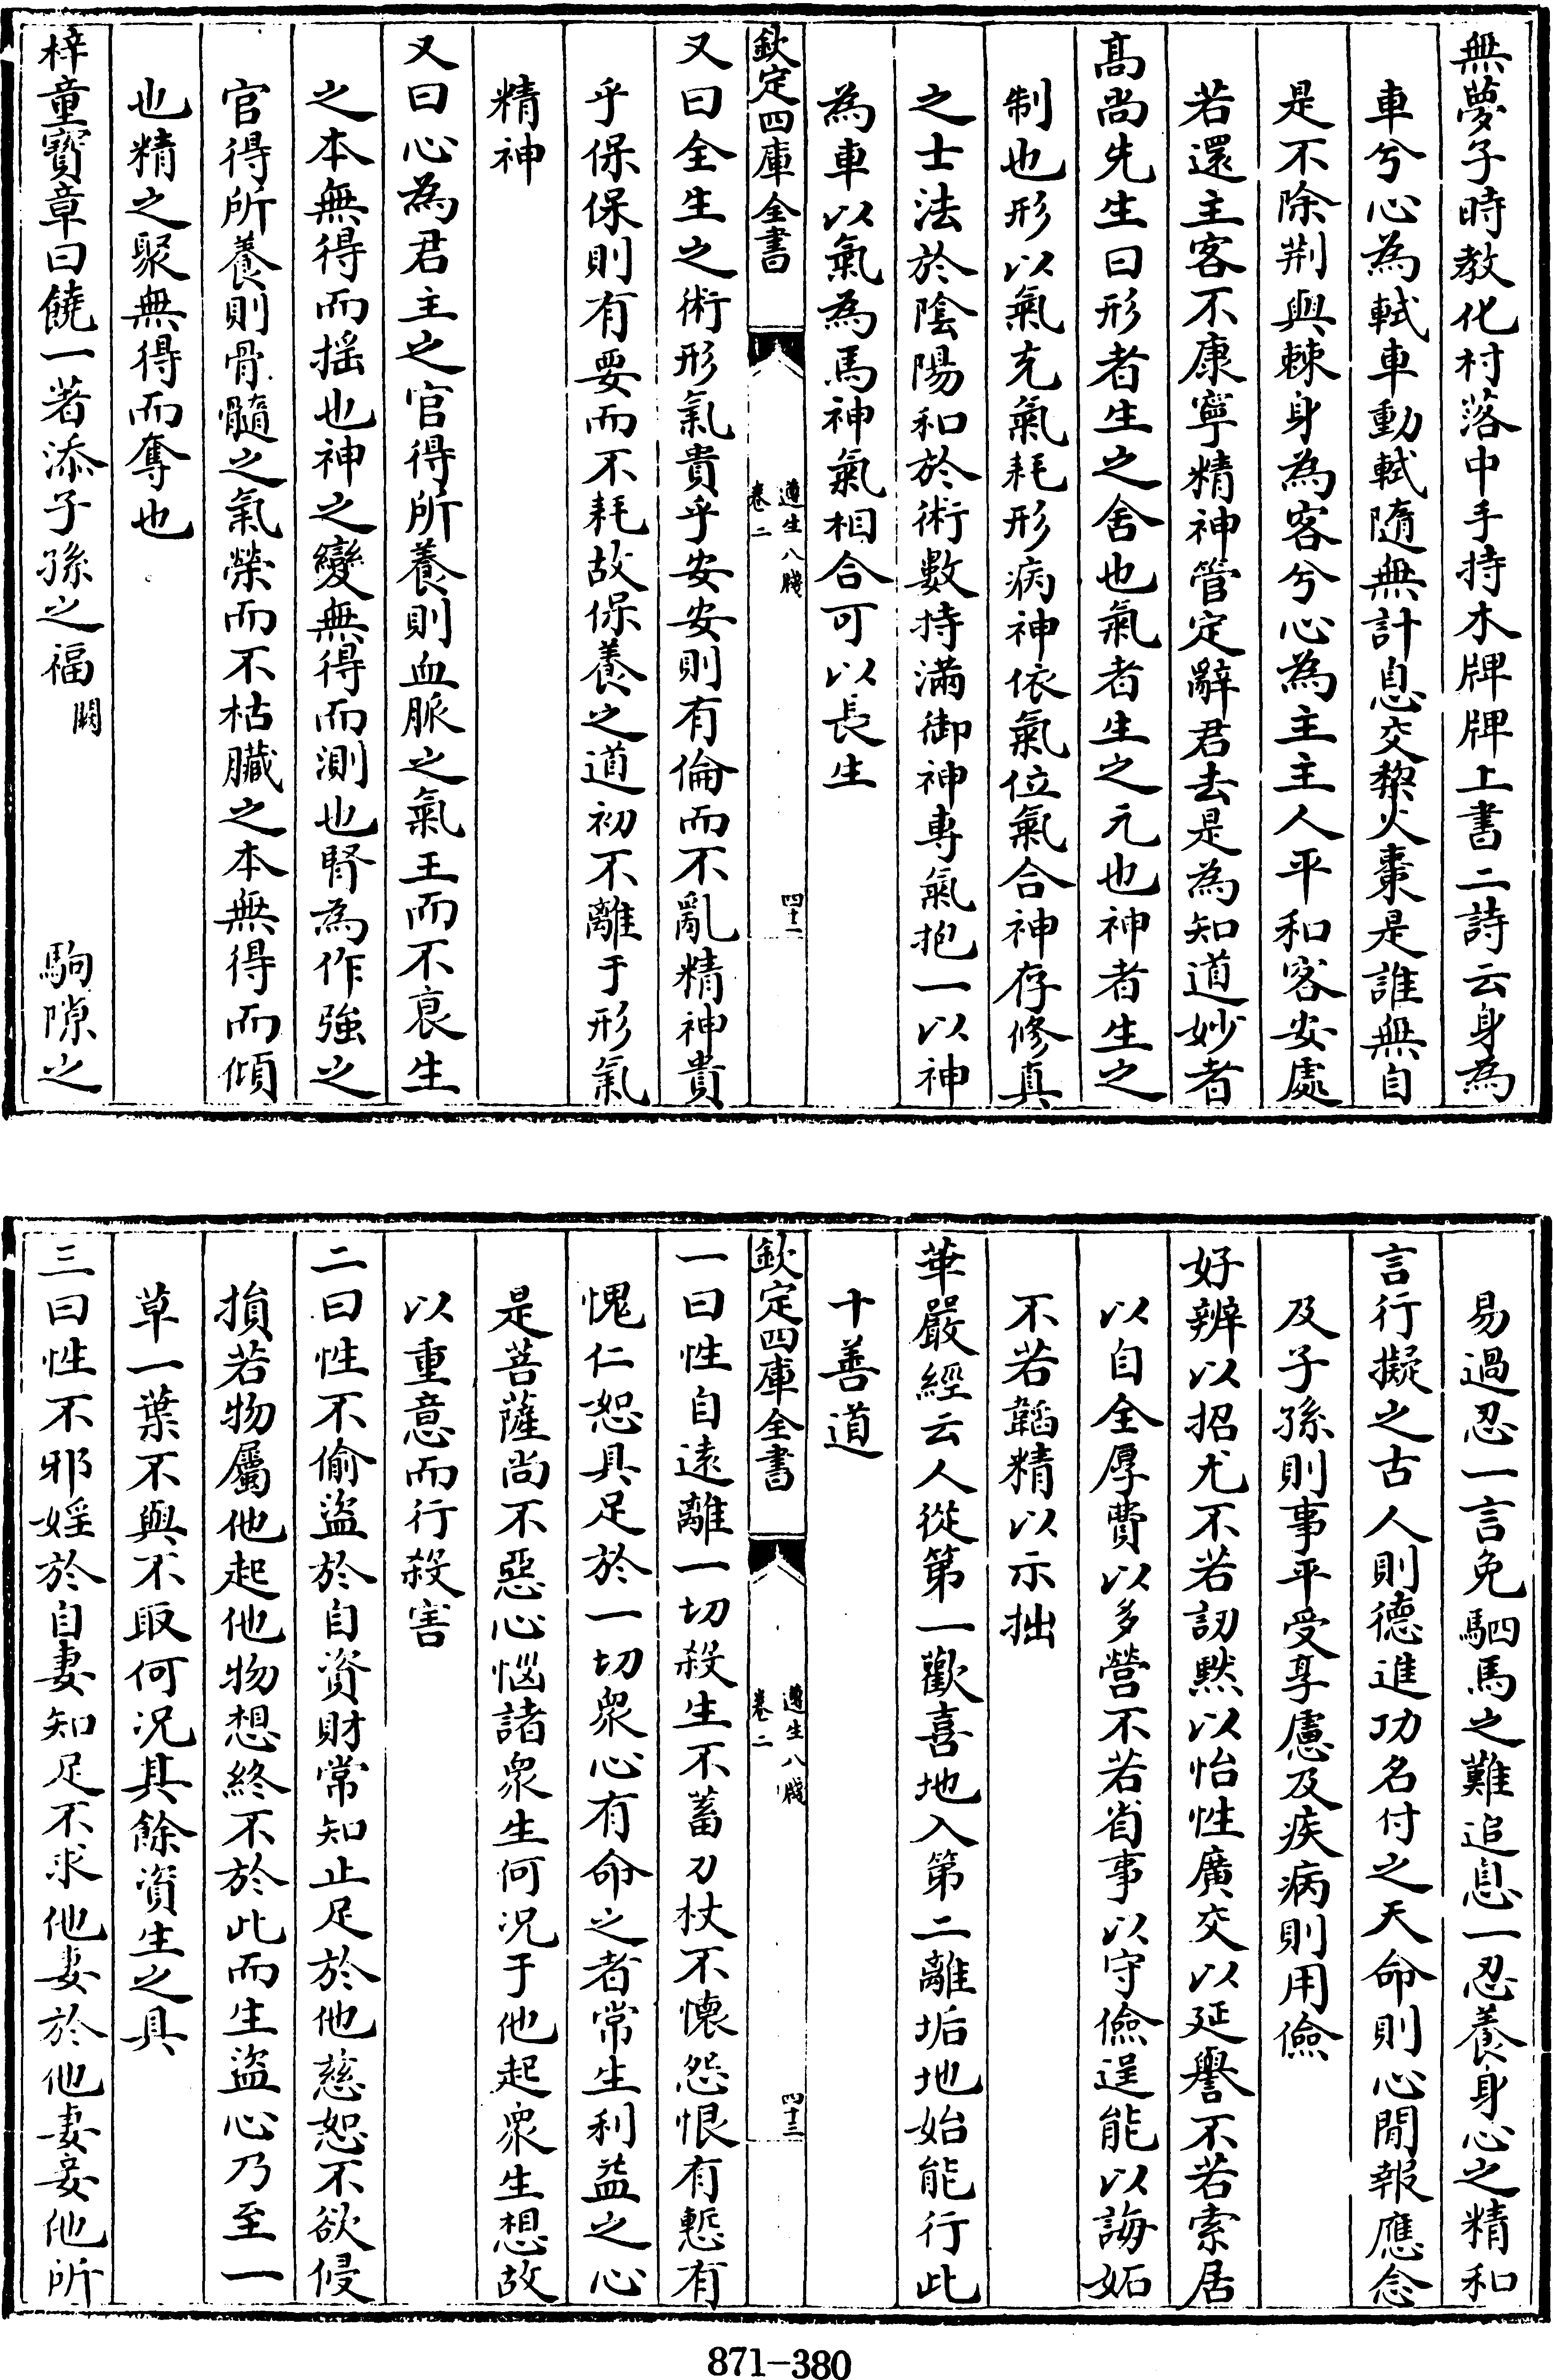 無夢子時教化村落中手持木牌牌上書二詩云身為
車兮心為軾車動軾隨無計息交棃火棗是誰無自
是不除荆與棘身為客兮心為主主人平和客安處
若還主客不康寧精神管定辭君去是為知道妙者
髙尚先生曰形者生之舍也氣者生之元也神者生之
制也形以氣充氣耗形病神依氣位氣合神存修真
之士法於陰陽和於術數持滿御神專氣抱一以神
為車以氣為馬神氣相合可以長生
欽定四庫全書
遵生八牋
卷二
四十二
又曰全生之術形氣貴乎安安則有倫而不亂精神貴
乎保保則有要而不耗故保養之道初不離于形氣
精神
又曰心為君主之官得所養則血脈之氣王而不衰生
之本無得而揺也神之變無得而測也腎為作強之
官得所養則骨髓之氣榮而不枯臟之本無得而傾
也精之聚無得而奪也
梓童寳章曰饒一著添子孫之福闕 駒隙之
易過忍一言免駟馬之難追息一忍養身心之精和
言行擬之古人則德進功名付之天命則心閒報應念
及子孫則事平受享慮及疾病則用儉
好辨以招尤不若訒黙以怡性廣交以延譽不若索居
以自全厚費以多營不若省事以守儉逞能以誨妬
不若韜精以示拙
華嚴經云人從第一歡喜地入第二離垢地始能行此
十善道
欽定四庫全書
遵生八牋
卷二
四十三
一曰性自遠離一切殺生不蓄刀杖不懐怨恨有慙有
愧仁恕具足於一切衆心有命之者常生利益之心
是菩薩尚不惡心惱諸衆生何况于他起衆生想故
以重意而行殺害
二曰性不偷盜於自資財常知止足於他慈恕不欲侵
損若物屬他起他物想終不於此而生盜心乃至一
草一葉不與不取何况其餘資生之具
三曰性不邪婬於自妻知足不求他妻於他妻妾他所
871-380